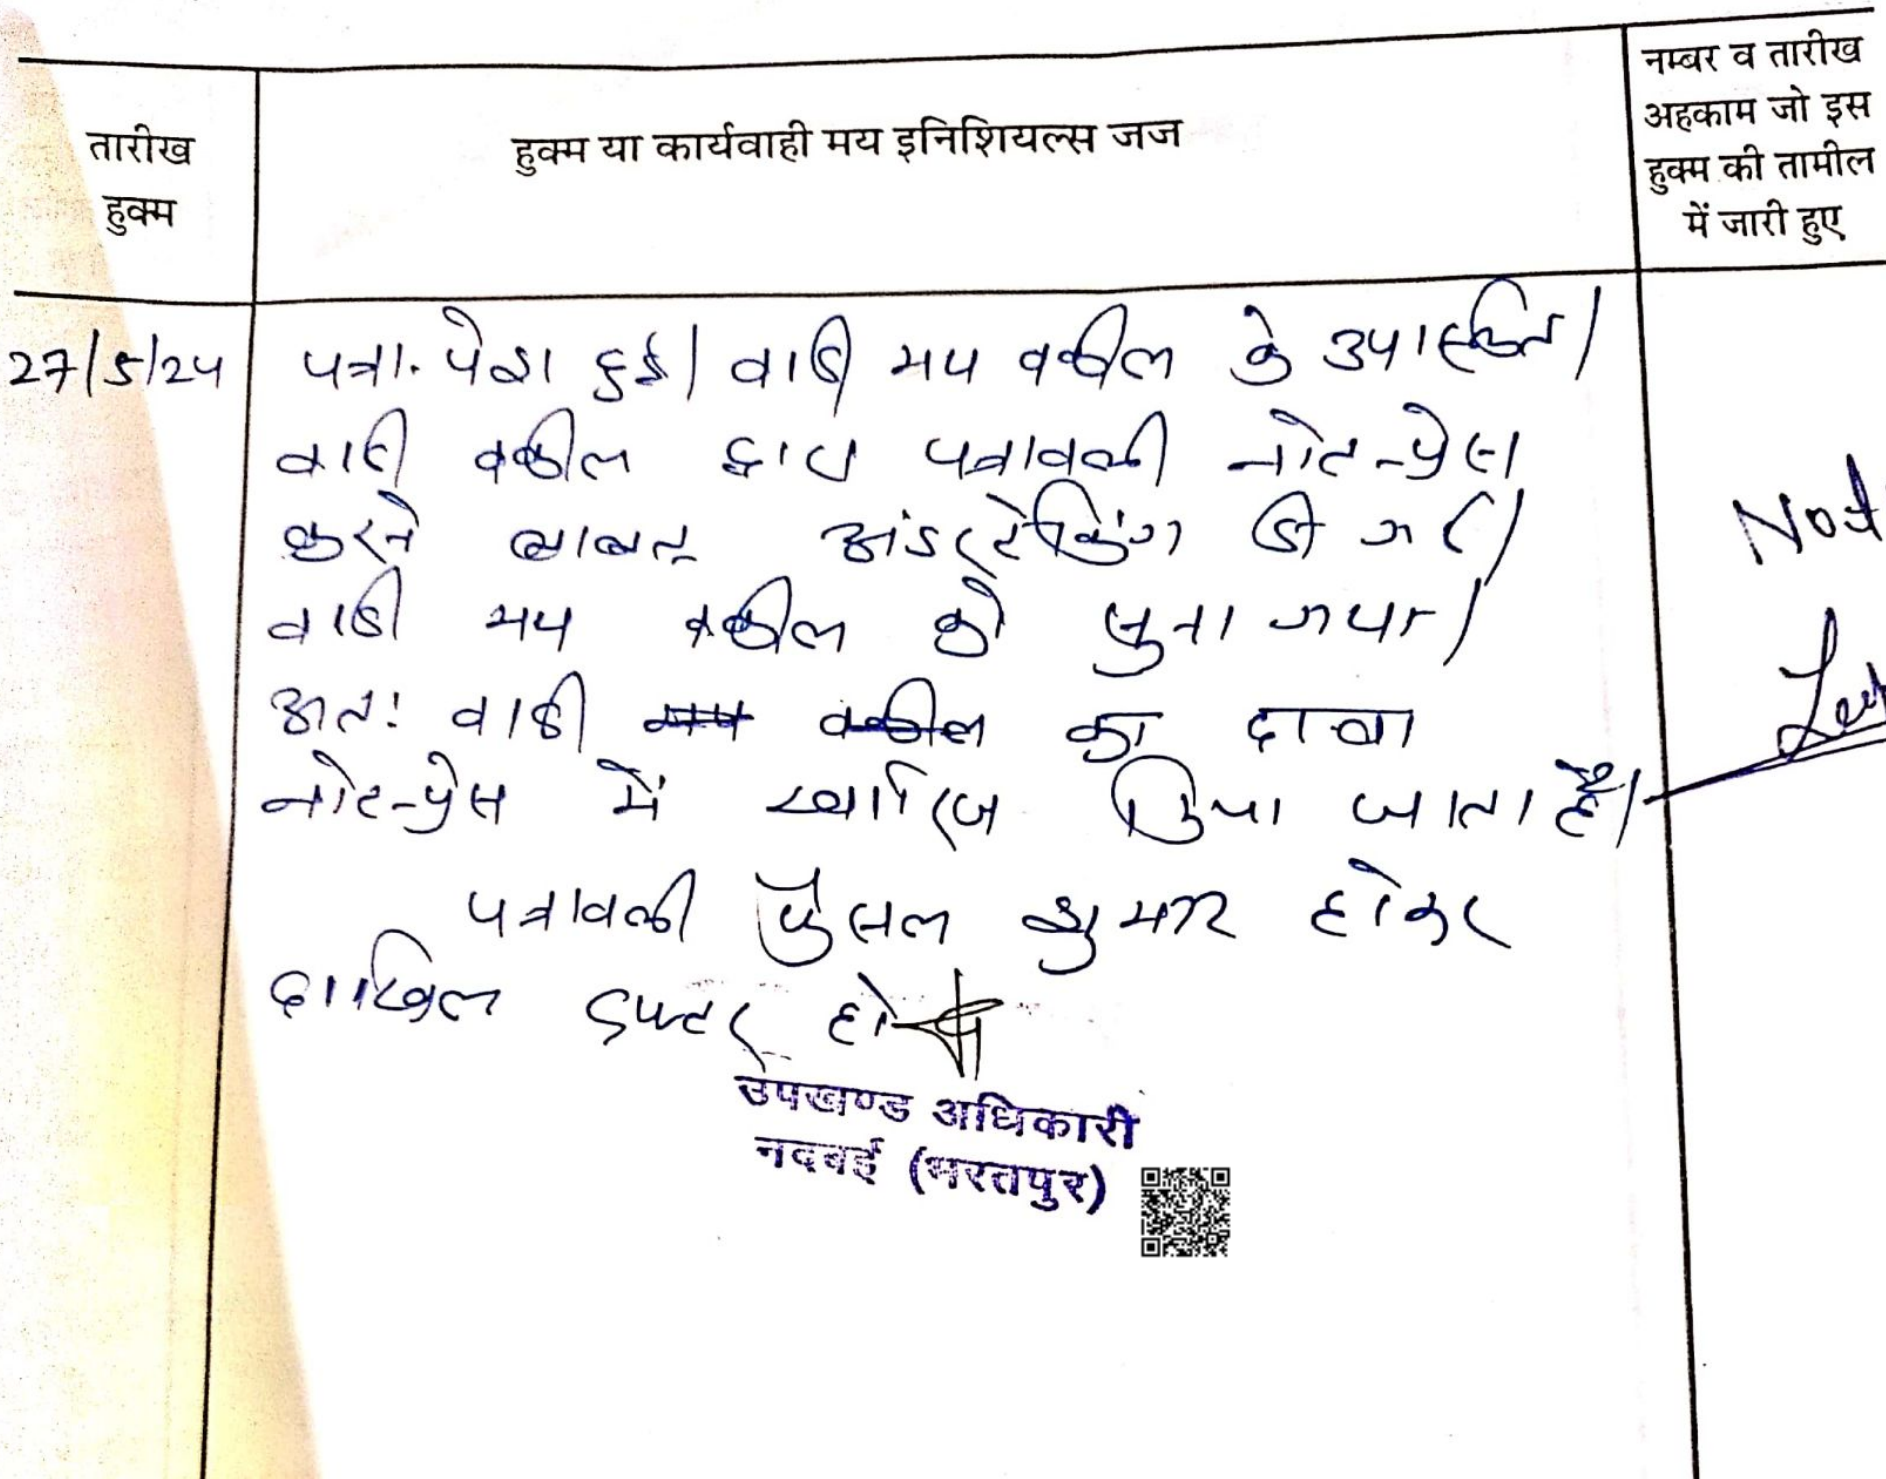 तारीख
हुक्म
हुक्म या कार्यवाही मय इनिशियल्स जज
नम्बर व तारीख
अहकाम जो इस
हुक्म की तामील
में जारी हुए
27/5/24
पत्रा. पेश हुई। वादी मय वकील के उपस्थित।
वादी वकील द्वारा पत्रावली नोट-प्रेस
करने बाबत् अंडरटेकिंग दी गई।
वादी मय वकील को सुना गया।
अतः वादी मय वकील का दावा
नोट-प्रेस में खारिज किया जाता है।
पत्रावली फैसल शुमार होकर
दाखिल दफ्तर हो
Not
उपखण्ड अधिकारी
नदबई (भरतपुर)